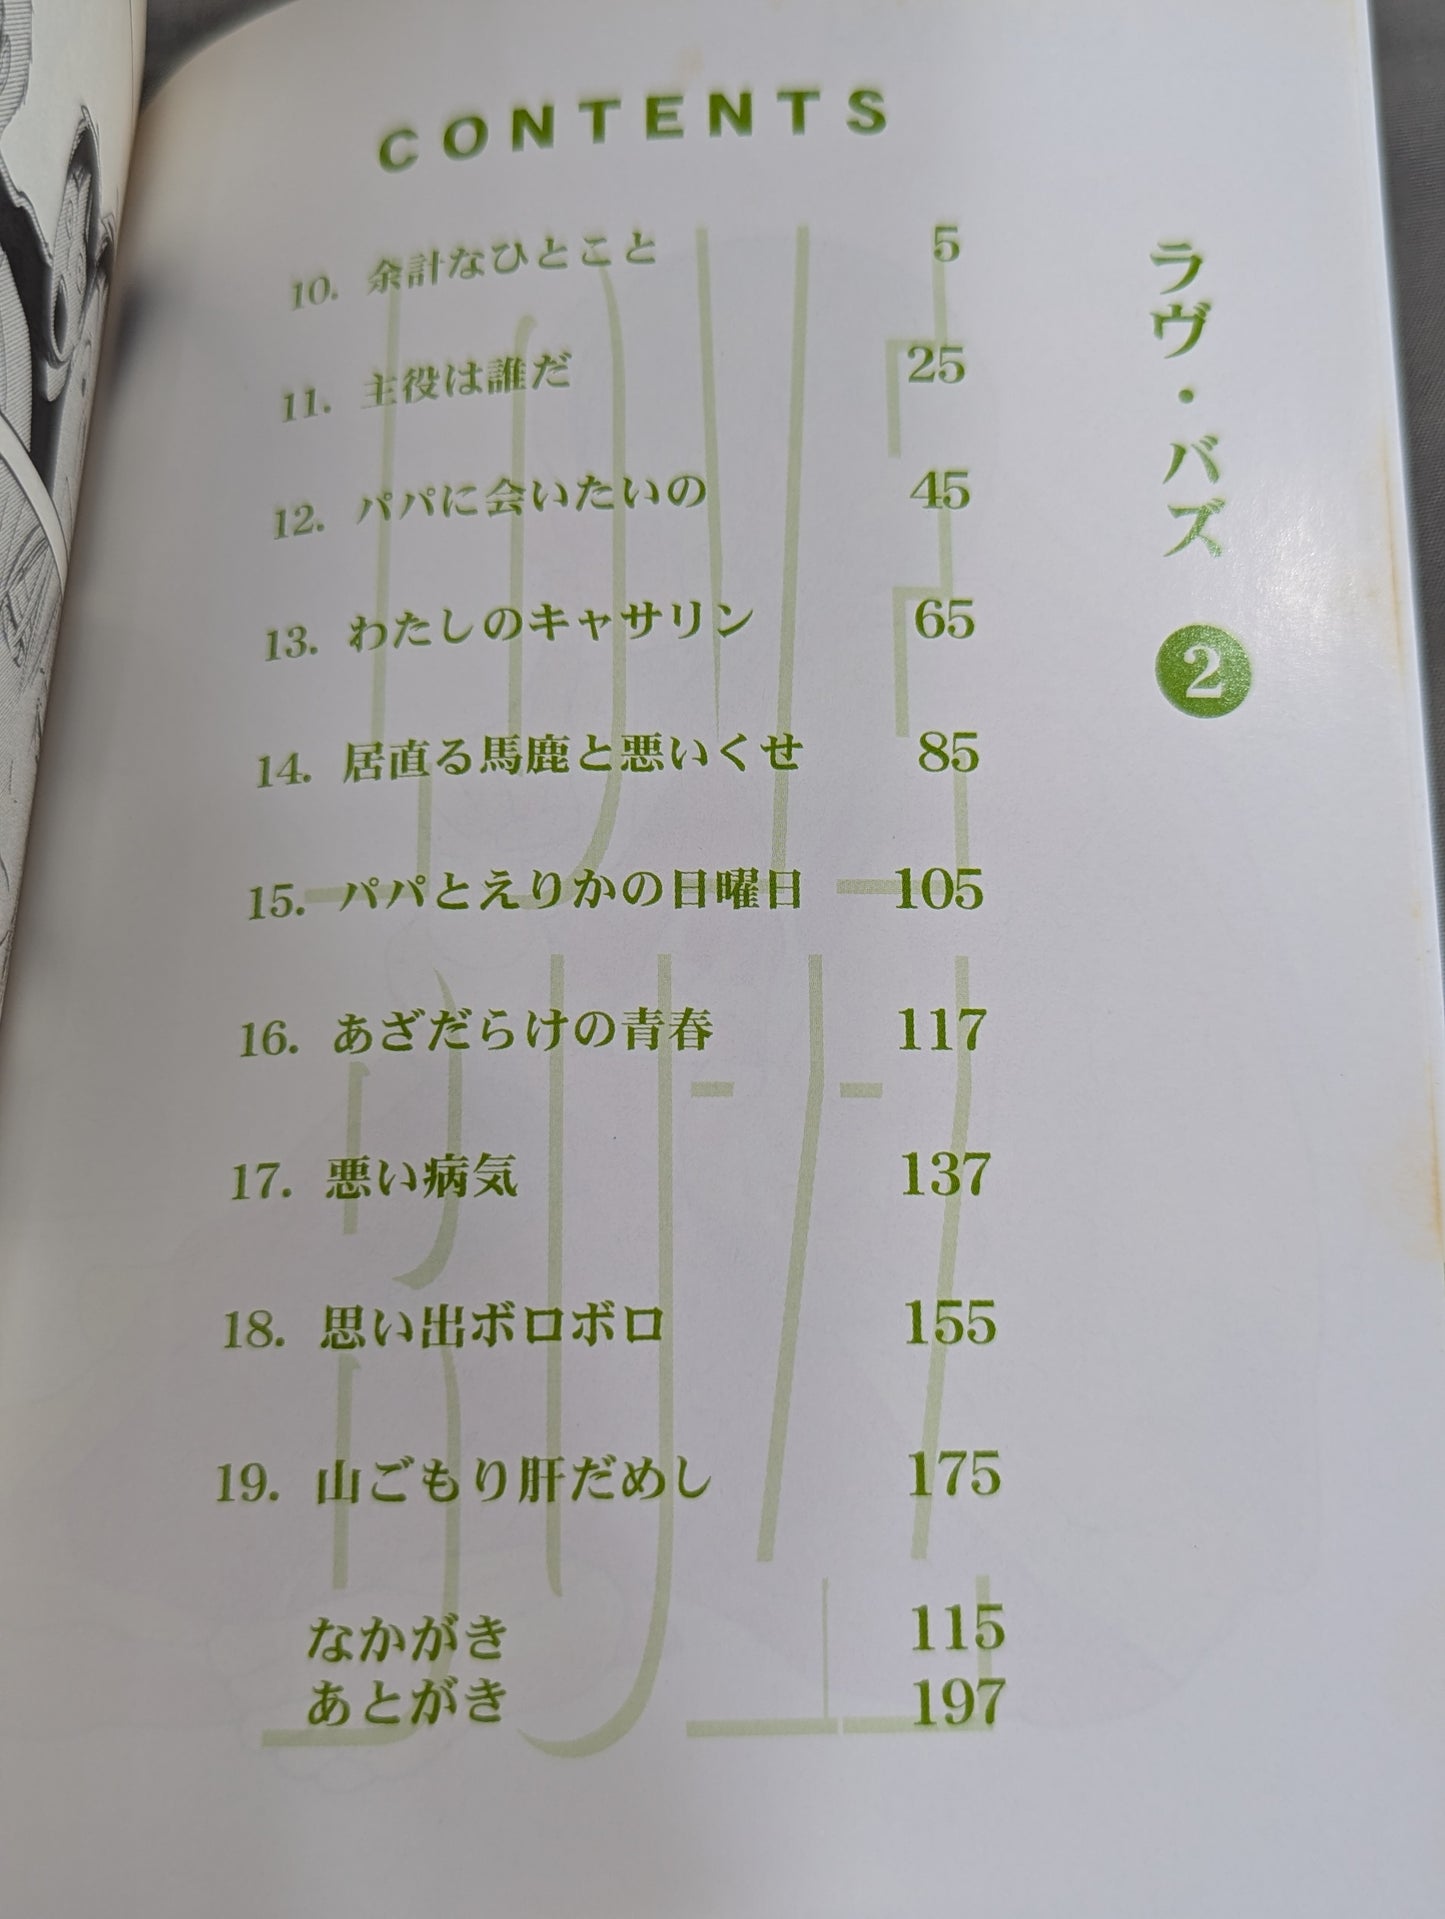 CONTENTS
ラヴ・バズ 2
10. 余計なひとこと 5
11. 主役は誰だ 25
12. パパに会いたいの 45
13. わたしのキャサリン 65
14. 居直る馬鹿と悪いくせ 85
15. パパとえりかの日曜日 105
16. あざだらけの青春 117
17. 悪い病気 137
18. 思い出ボロボロ 155
19. 山ごもり肝だめし 175
なかがき 115
あとがき 197
LOVE
BUZZ